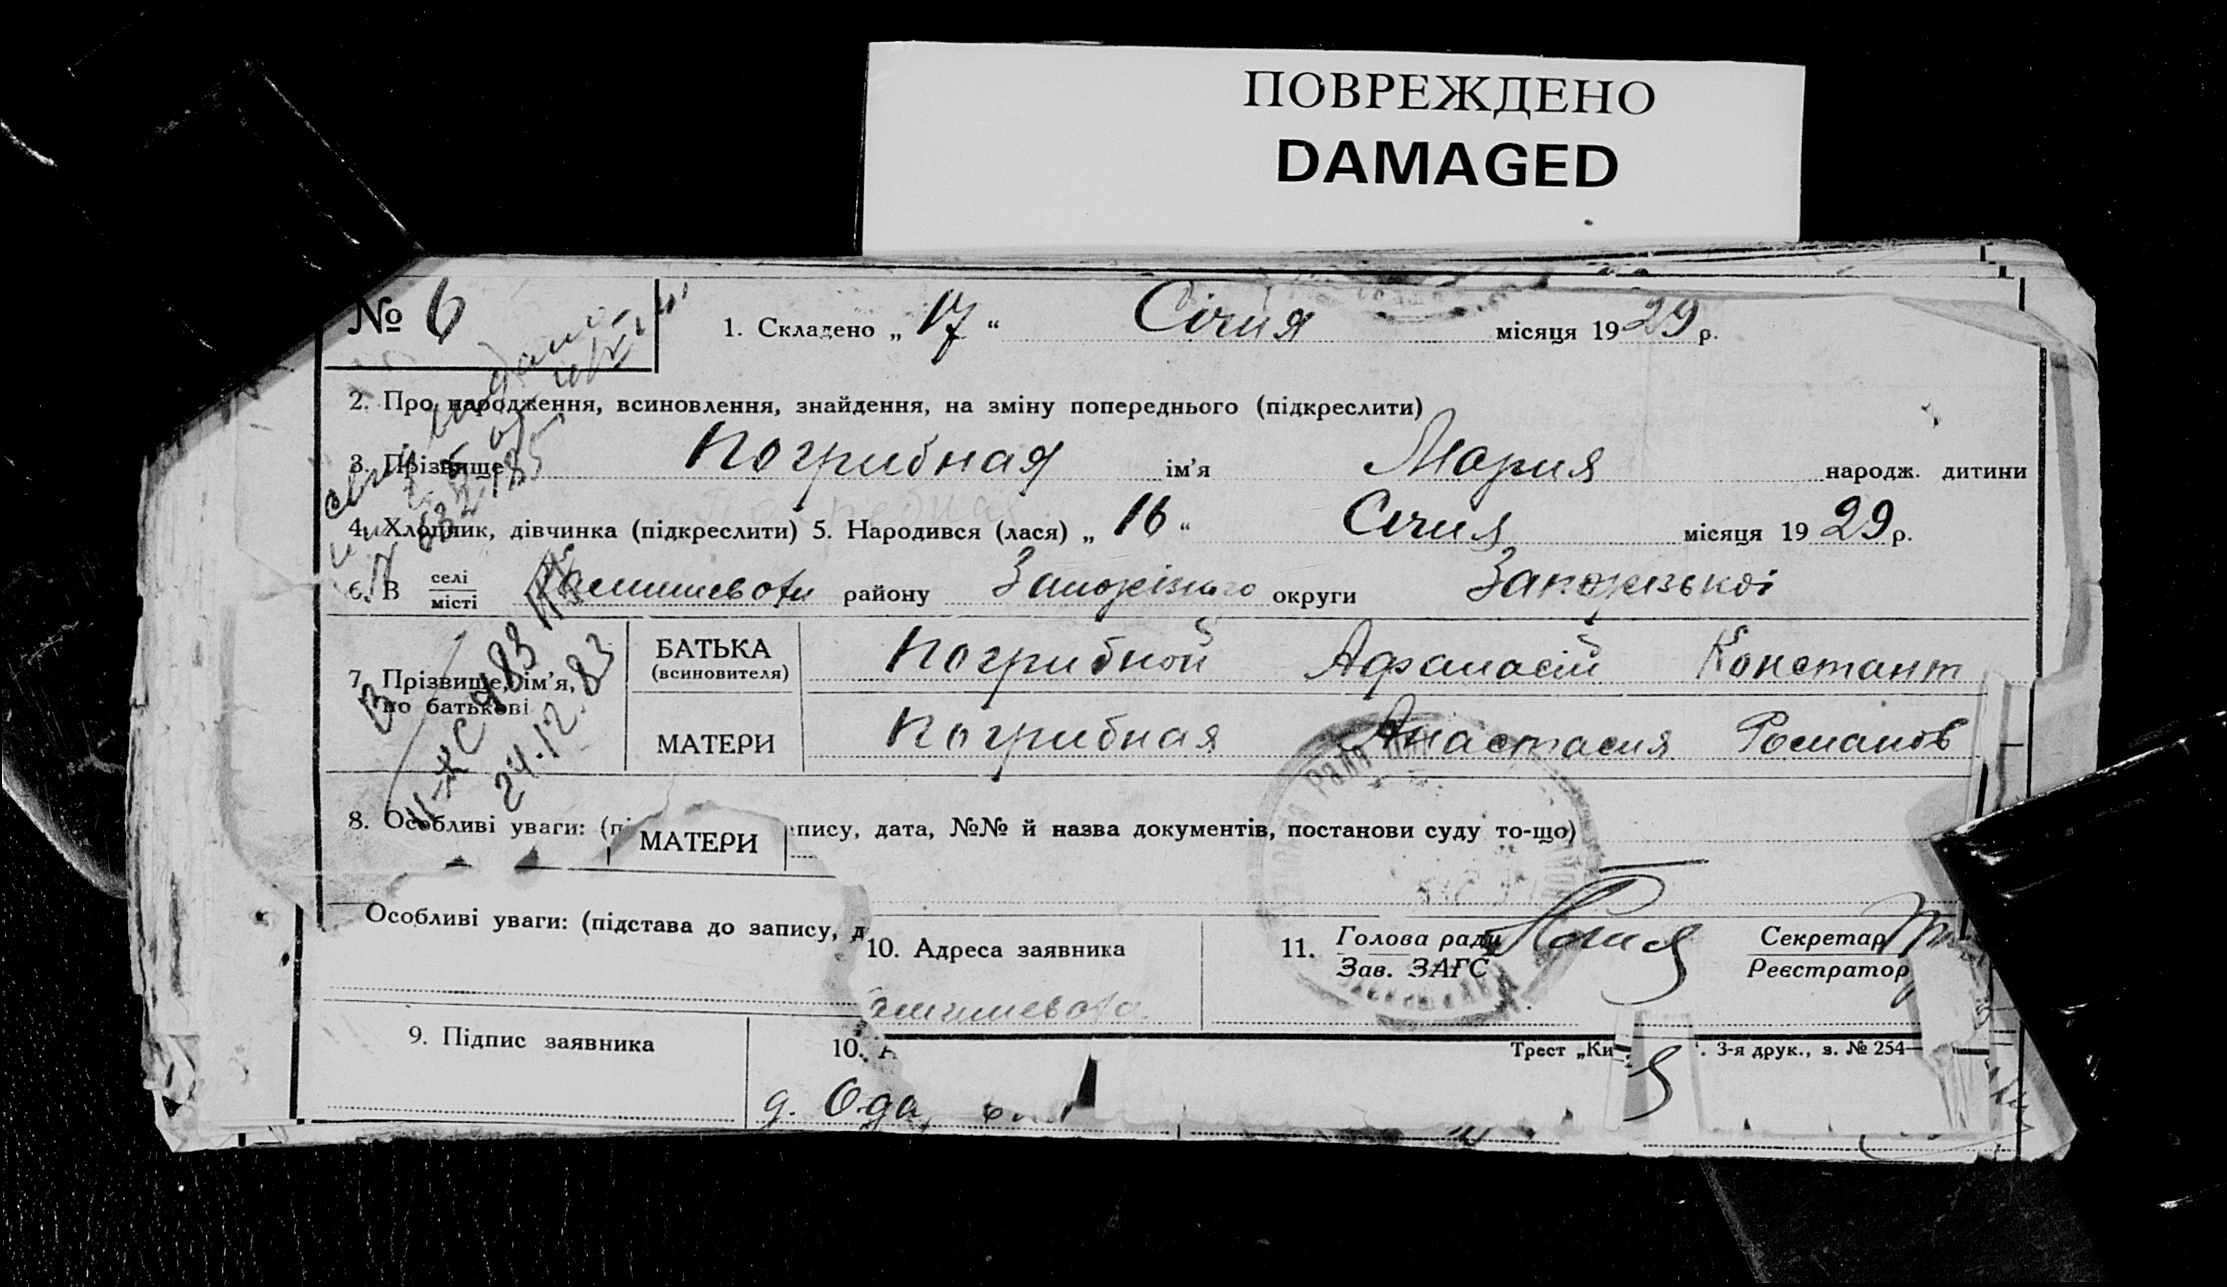 ПОВРЕЖДЕНО
DAMAGED
№ 6
1. Складено „ 17 “ Січня місяця 1929 р.
2. Про народження, всиновлення, знайдення, на зміну попереднього (підкреслити)
3. Прізвище Погрибная ім'я Мария народж. дитини
4. Хлопчик, дівчинка (підкреслити) 5. Народився (лася) „ 16 “ Січня місяця 1929 р.
6. В селі місті району Запорізького округи Запорізької
7. Прізвище, ім'я, по батькові
БАТЬКА (всиновителя) Погрибной Афанасій Констант
МАТЕРИ Погрибная Анастасия Романов
24.12.83
8. Особливі уваги: (пі
МАТЕРИ
пису, дата, №№ й назва документів, постанови суду то-що)
Особливі уваги: (підстава до запису, д
10. Адреса заявника
11. Голова ради Зав. ЗАГС
Секретар Реєстратор
9. Підпис заявника
10. А
Трест „Ки
. 3-я друк., з. № 254—